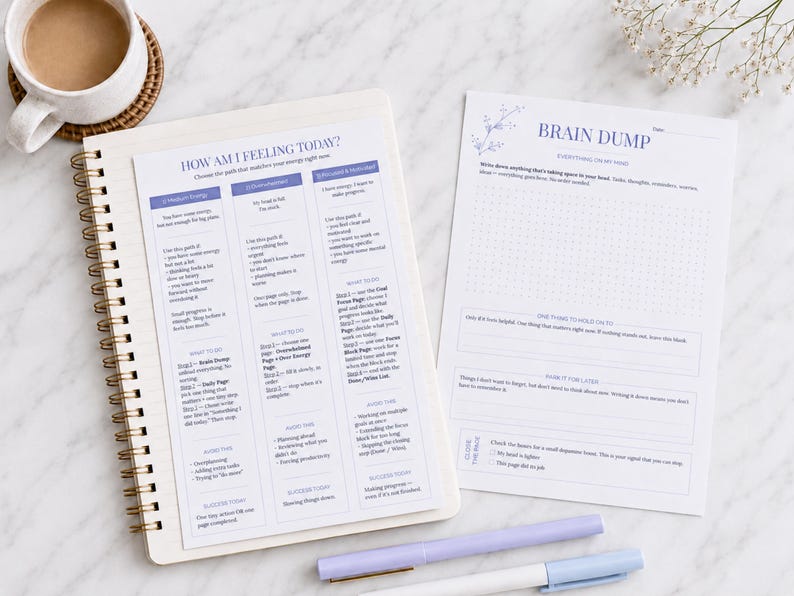 HOW AM I FEELING TODAY?
Choose the path that matches your energy right now.
1) Medium Energy
You have some energy,
but not enough for big plans.
Use this path if:
- you have some energy
but not a lot
- thinking feels a bit
slow or heavy
- you want to move
forward without
overdoing it
Small progress is
enough. Stop before it
feels too much.
WHAT TO DO
Step 1 — Brain Dump:
unload everything. No
sorting.
Step 2 — Daily Page:
pick one thing that
matters + one tiny step.
Step 3 — Chose write
one line in "Something I
did today." Then stop.
AVOID THIS
- Overplanning
- Adding extra tasks
- Trying to "do more"
SUCCESS TODAY
One tiny action OR one
page completed.
2) Overwhelmed
My head is full.
I'm stuck.
Use this path if:
- everything feels
urgent
- you don't know where
to start
- planning makes it
worse
One page only. Stop
when the page is done.
WHAT TO DO
Step 1 — choose one
page: Overwhelmed
Page or Over Energy
Page.
Step 2 — fill it slowly, in
order.
Step 3 — stop when it's
complete.
AVOID THIS
- Planning ahead
- Reviewing what you
didn't do
- Forcing productivity
SUCCESS TODAY
Slowing things down.
3) Focused & Motivated
I have energy. I want to
make progress.
Use this path if:
- you feel clear and
motivated
- you want to work on
something specific
- you have some mental
energy
WHAT TO DO
Step 1 — use the Goal
Focus Page: choose 1
goal and decide what
progress looks like.
Step 2 — use the Daily
Page: decide what you'll
work on today.
Step 3 — use one Focus
Block Page: work for a
limited time and stop
when the block ends.
Step 4 — end with the
Done/Wins List.
AVOID THIS
- Working on multiple
goals at once
- Extending the focus
block for too long
- Skipping the closing
step (Done / Wins).
SUCCESS TODAY
Making progress —
even if it's not finished.
BRAIN DUMP
Date:
EVERYTHING ON MY MIND
Write down anything that's taking space in your head. Tasks, thoughts, reminders, worries,
ideas — everything goes here. No order needed.
ONE THING TO HOLD ON TO
Only if it feels helpful. One thing that matters right now. If nothing stands out, leave this blank.
PARK IT FOR LATER
Things I don't want to forget, but don't need to think about now. Writing it down means you don't
have to remember it.
CLOSE
THE PAGE
Check the boxes for a small dopamine boost. This is your signal that you can stop.
My head is lighter
This page did its job